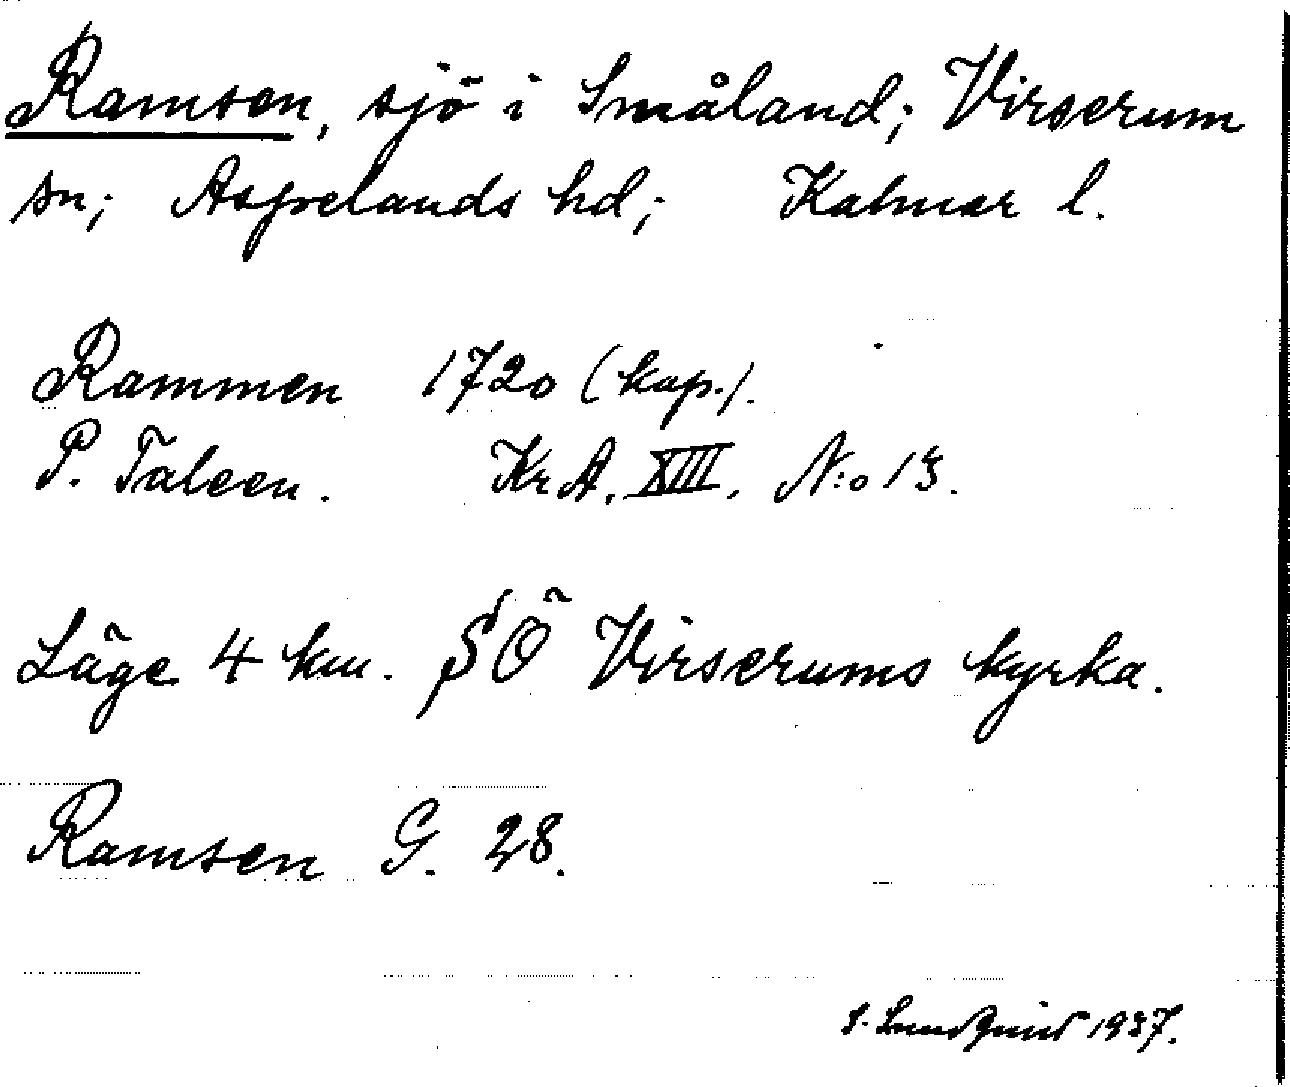 Ramsen, sjö i Småland; Virserum
sn; Aspelands hd; Kalmar l.
Rammen 1720 (kop.).
P. Taleen. KrA. XIII. N:o 13.
Läge 4 km. SÖ Virserums kyrka.
Ramsen G. 28.
S. Lundquist 1937.